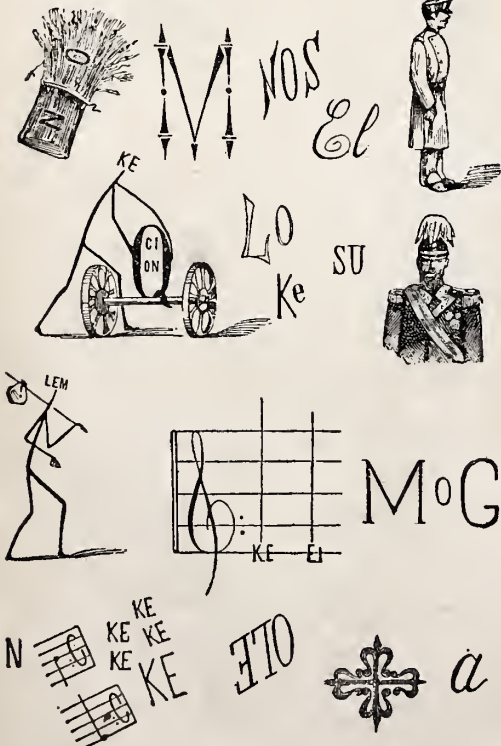 N O M NOS El
KE CI ON LO Ke SU
LEM KE El MoG
N KE KE KE KE KE OLE a